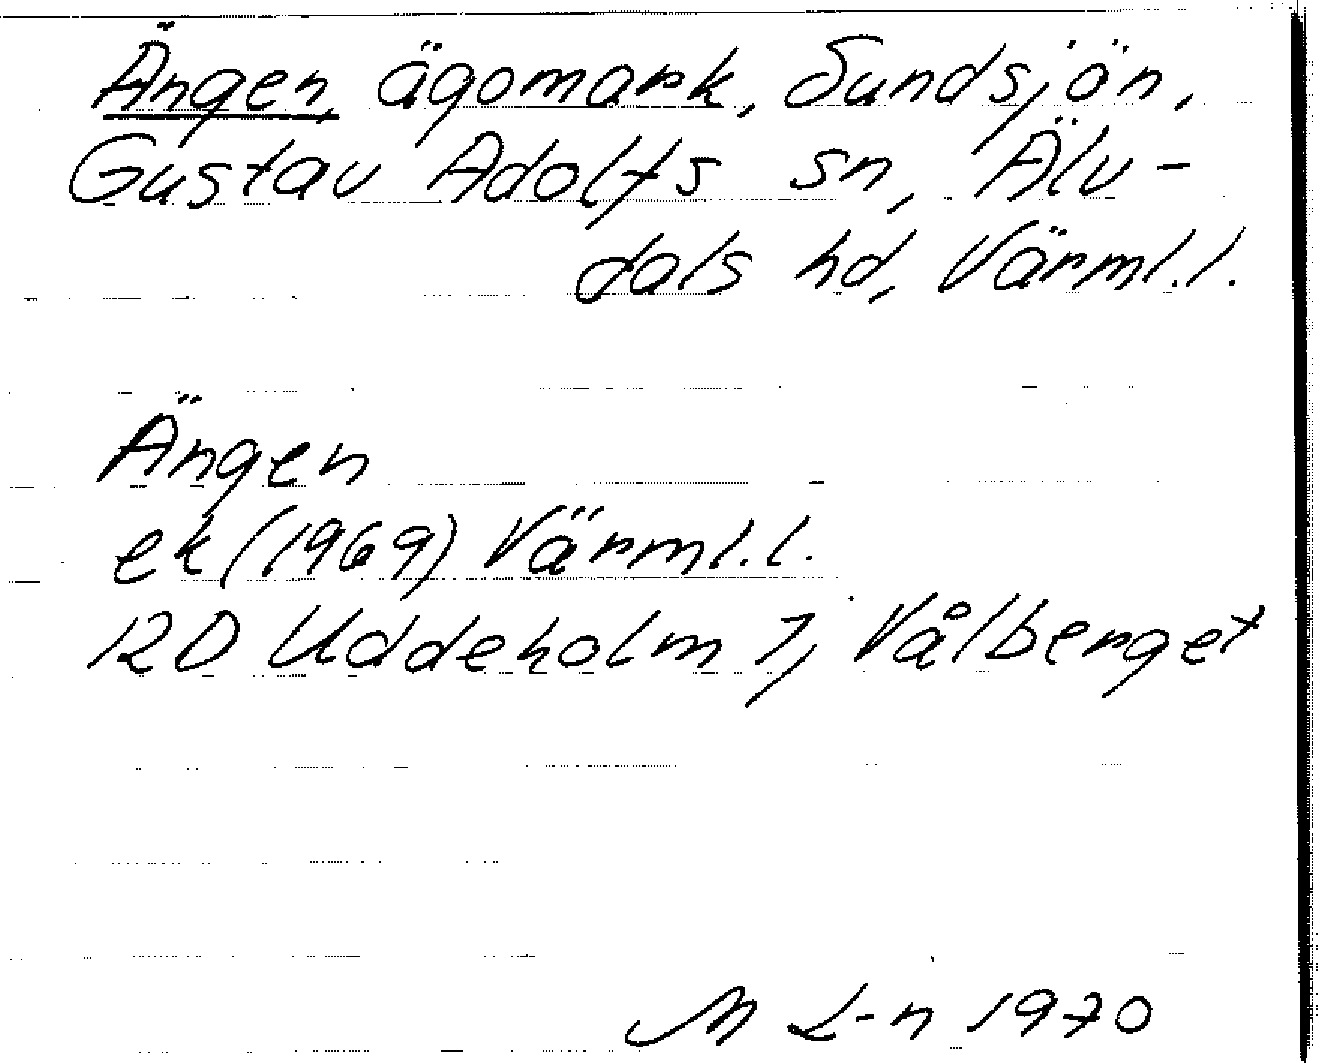 Ängen, ägomark, Sundsjön,
Gustav Adolfs sn, Älv-
dals hd, Värml.l.
Ängen
ek (1969) Värml.l.
12D Uddeholm 7, Vålberget
M L-n 1970